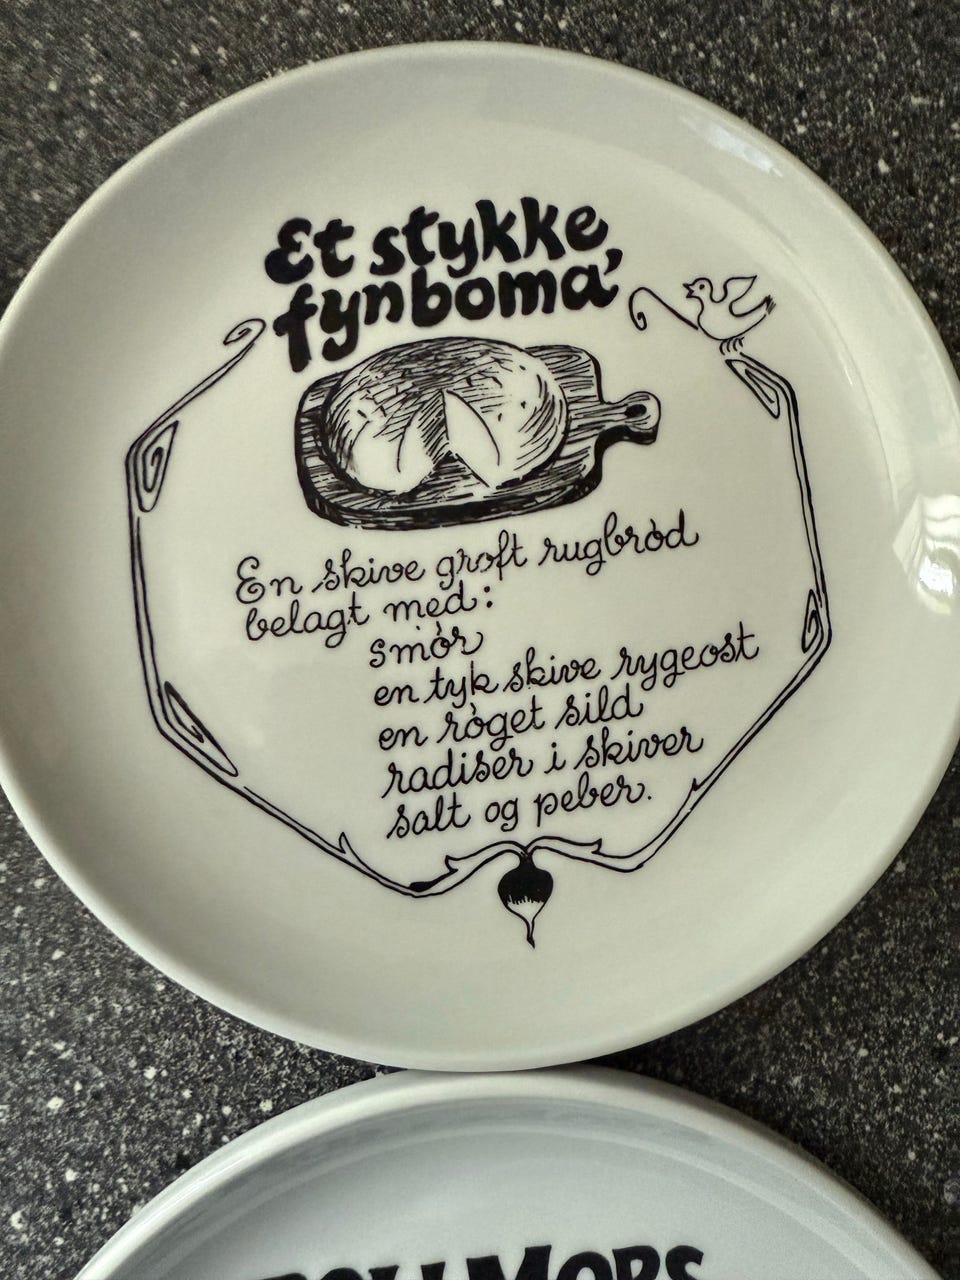 Et stykke
fynboma'
En skive groft rugbrød
belagt med:
smør
en tyk skive rygeost
en røget sild
radiser i skiver
salt og peber.